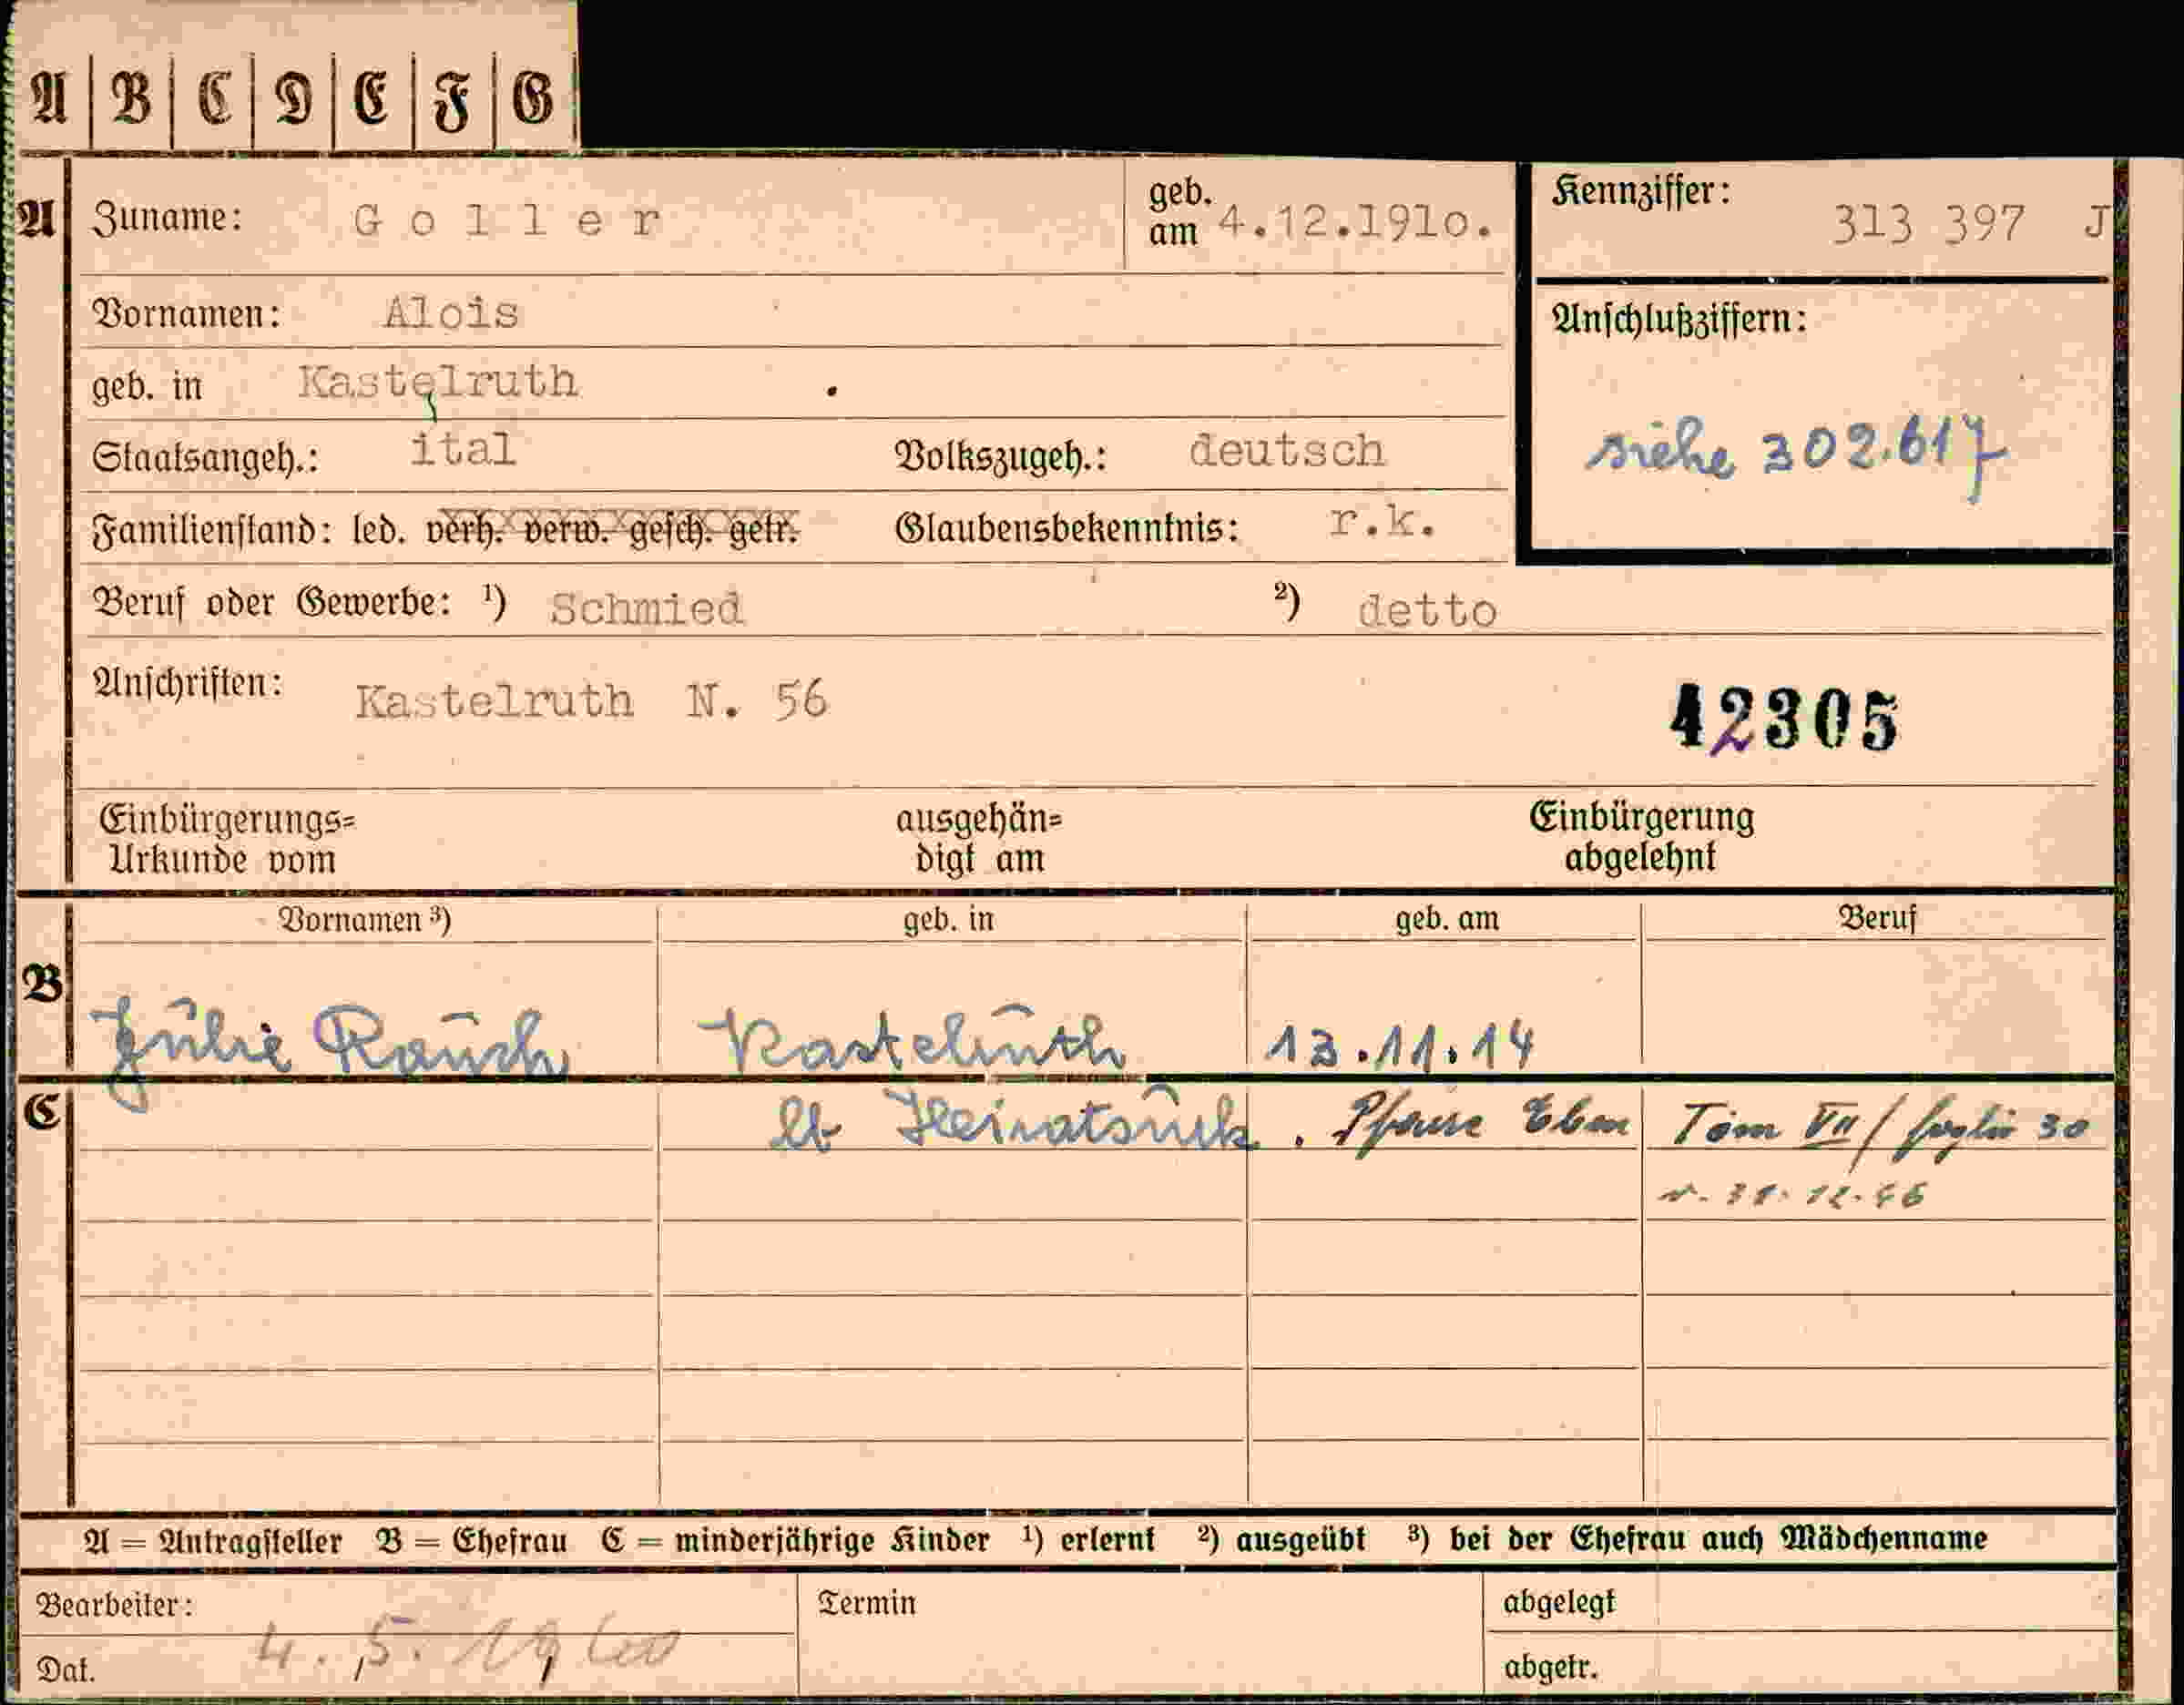 A | B | C | D | E | F | G
A Zuname: Goller geb. am 4.12.191o. Kennziffer: 313 397 J
Vornamen: Alois
Anschlußziffern:
geb. in Kastelruth .
Staatsangeh.: ital Volkszugeh.: deutsch siehe 302.617
Familienstand: led. verh. verw. gesch. getr. Glaubensbekenntnis: r.k.
Beruf oder Gewerbe: ¹) Schmied ²) detto
Anschriften: Kastelruth N. 56 42305
Einbürgerungs= ausgehän= Einbürgerung
Urkunde vom digt am abgelehnt
Vornamen ³) geb. in geb. am Beruf
B Julie Rauch Kastelruth 13.11.14
C lt Heiratsurk. Pfarre Eben Tom VII / foglio 30
v. 31.12.46
A = Antragsteller B = Ehefrau C = minderjährige Kinder ¹) erlernt ²) ausgeübt ³) bei der Ehefrau auch Mädchenname
Bearbeiter: Termin abgelegt
Dat. 4. 5. abgetr.